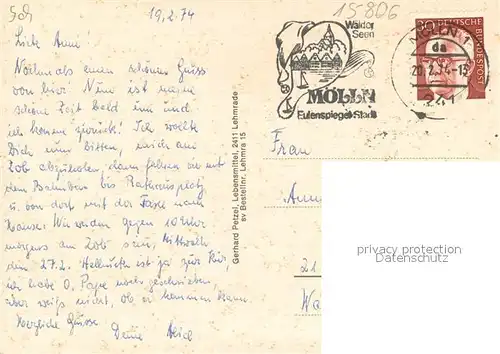 15806
19.2.74
Liebe Anne
Nochmals einen schönen Gruss
von hier. Nun ist unsere
schöne Zeit bald um und
ich komme zurück! Ich wollte
Dich nun bitten, mich am
Zob abzuholen dann fahren wir mit
dem Bahnbus bis Rathausplatz
u. von dort mit der Taxe nach
Hause. Wir werden gegen 10 Uhr
morgens am Zob sein, Mittwoch
den 27.2. ist ja zur Kur,
ich habe O. Pape noch geschrieben,
aber weiß nicht, ob er kommen kann.
Herzliche Grüsse
Deine
Gerhard Petzel, Lebensmittel, 2411 Lehmrade
sv Bestellnr. Lehmra 15
Wälder
Seen
MÖLLN
Eulenspiegel-Stadt
MÖLLN 1
da
20.2.74-13
241
30 DEUTSCHE
BUNDESPOST
Frau
21
copyright protected